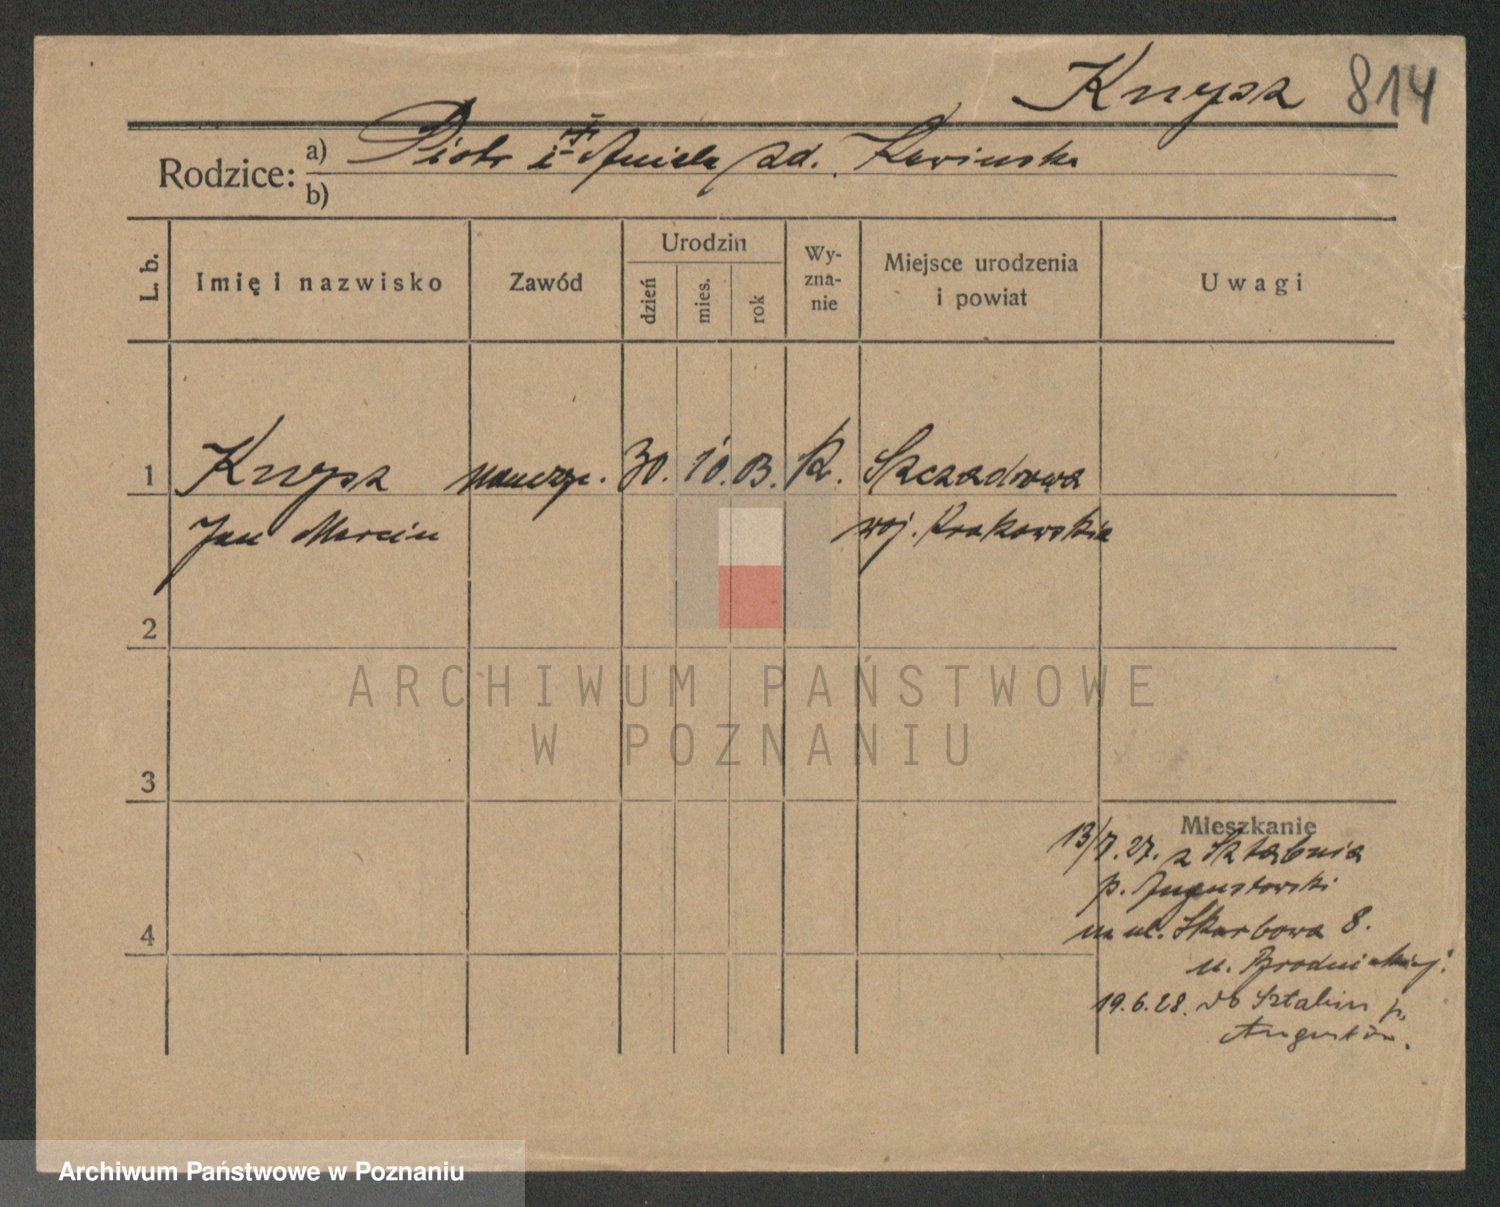 Knysz 814
Rodzice: a) Piotr i Aniela zd. Kawinska
b)
L. b. Imię i nazwisko Zawód Urodzin dzień mies. rok Wyznanie Miejsce urodzenia i powiat Uwagi
1 Knysz naucz. 30. 10. 03. k. Szczadrowa
Jan Marcin woj. Krakowskie
2
ARCHIWUM PAŃSTWOWE
W POZNANIU
3
Mieszkanie
13/7.27. z Sztabnia
p. Augustowski
na ul. Skarbowa 8.
u. Brodnickiej.
4
19.6.28. do Sztabin p.
Augustów.
Archiwum Państwowe w Poznaniu